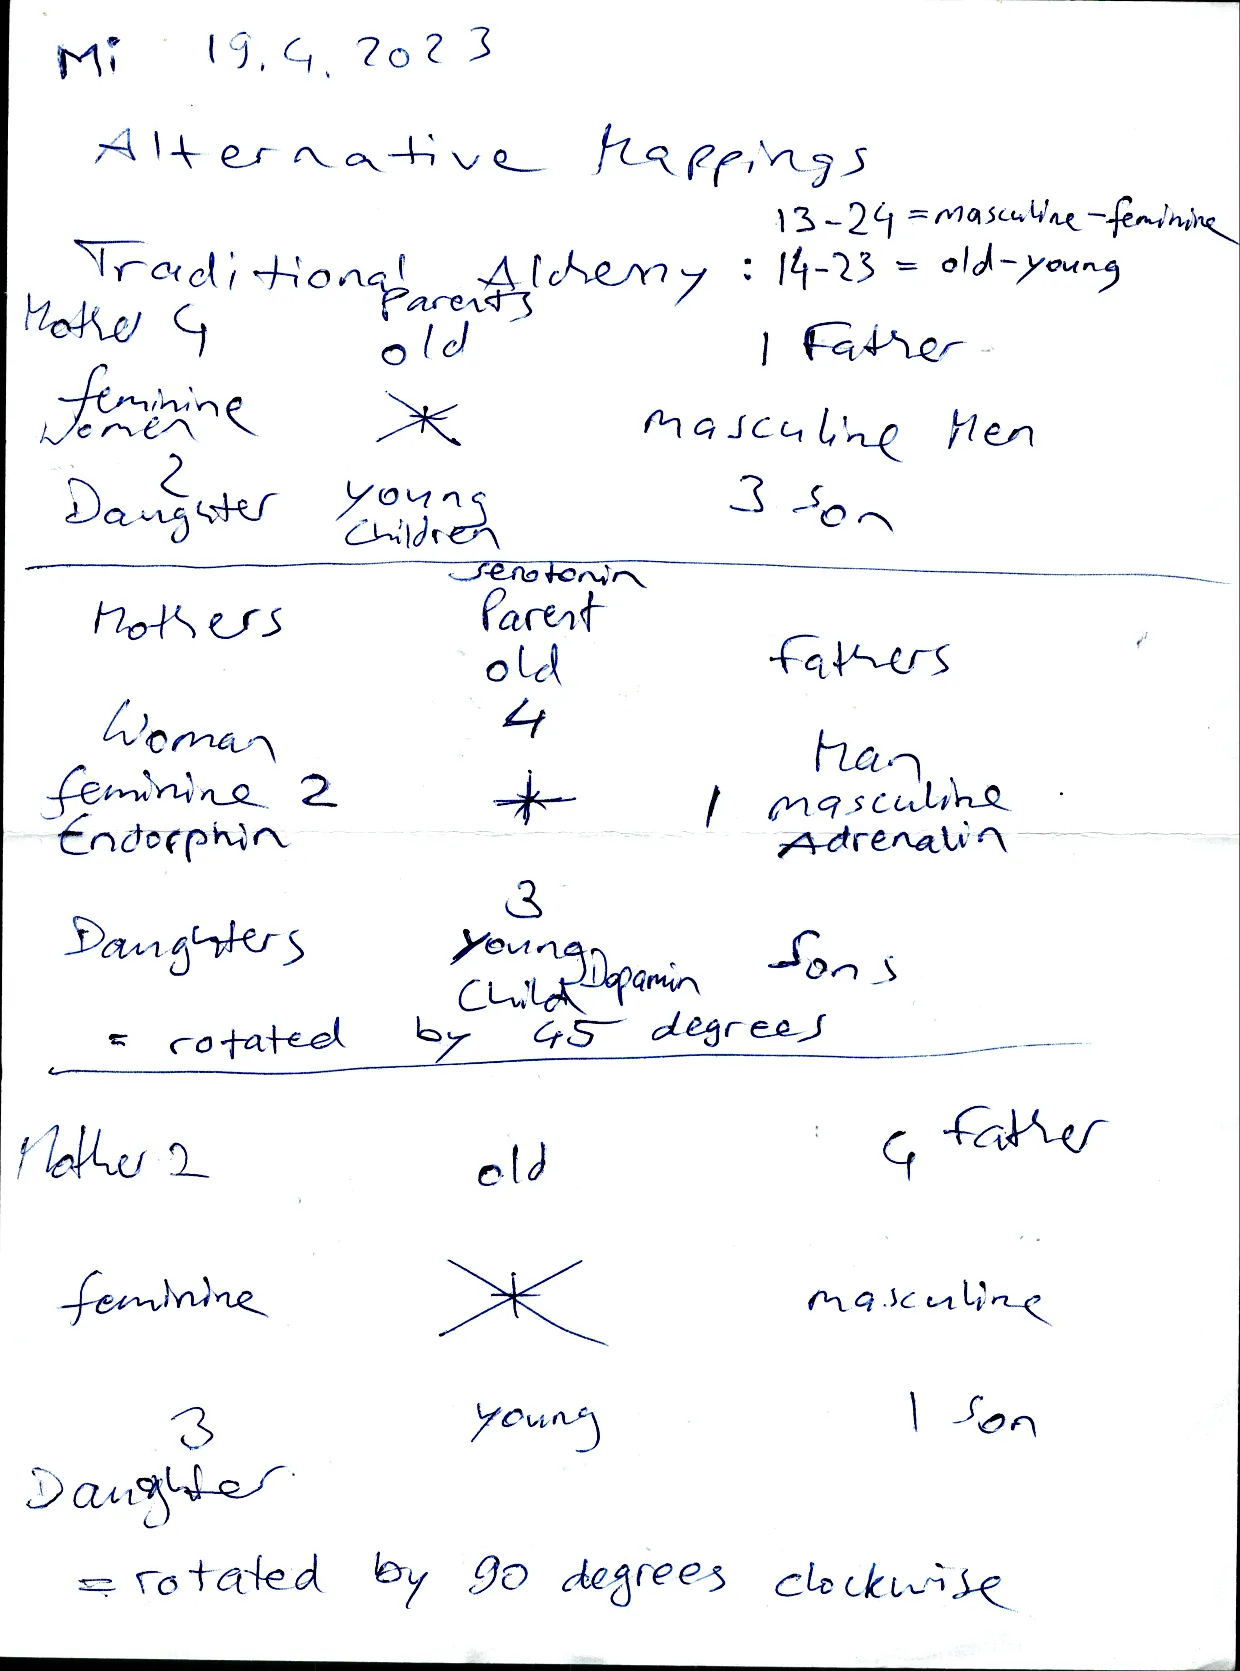 Mi 19.4.2023
Alternative Mappings
13-24 = masculine-feminine
Traditional Alchemy : 14-23 = old-young
Parents
Mother 4 old 1 Father
feminine
Women masculine Men
2
Daughter young 3 Son
Children
serotonin
Mothers Parent
old Fathers
4
Woman Man
feminine 2 1 masculine
Endorphin Adrenalin
3
Daughters young Sons
Child Dopamin
= rotated by 45 degrees
Mother 2 old 4 Father
feminine masculine
3 young 1 Son
Daughter
= rotated by 90 degrees clockwise